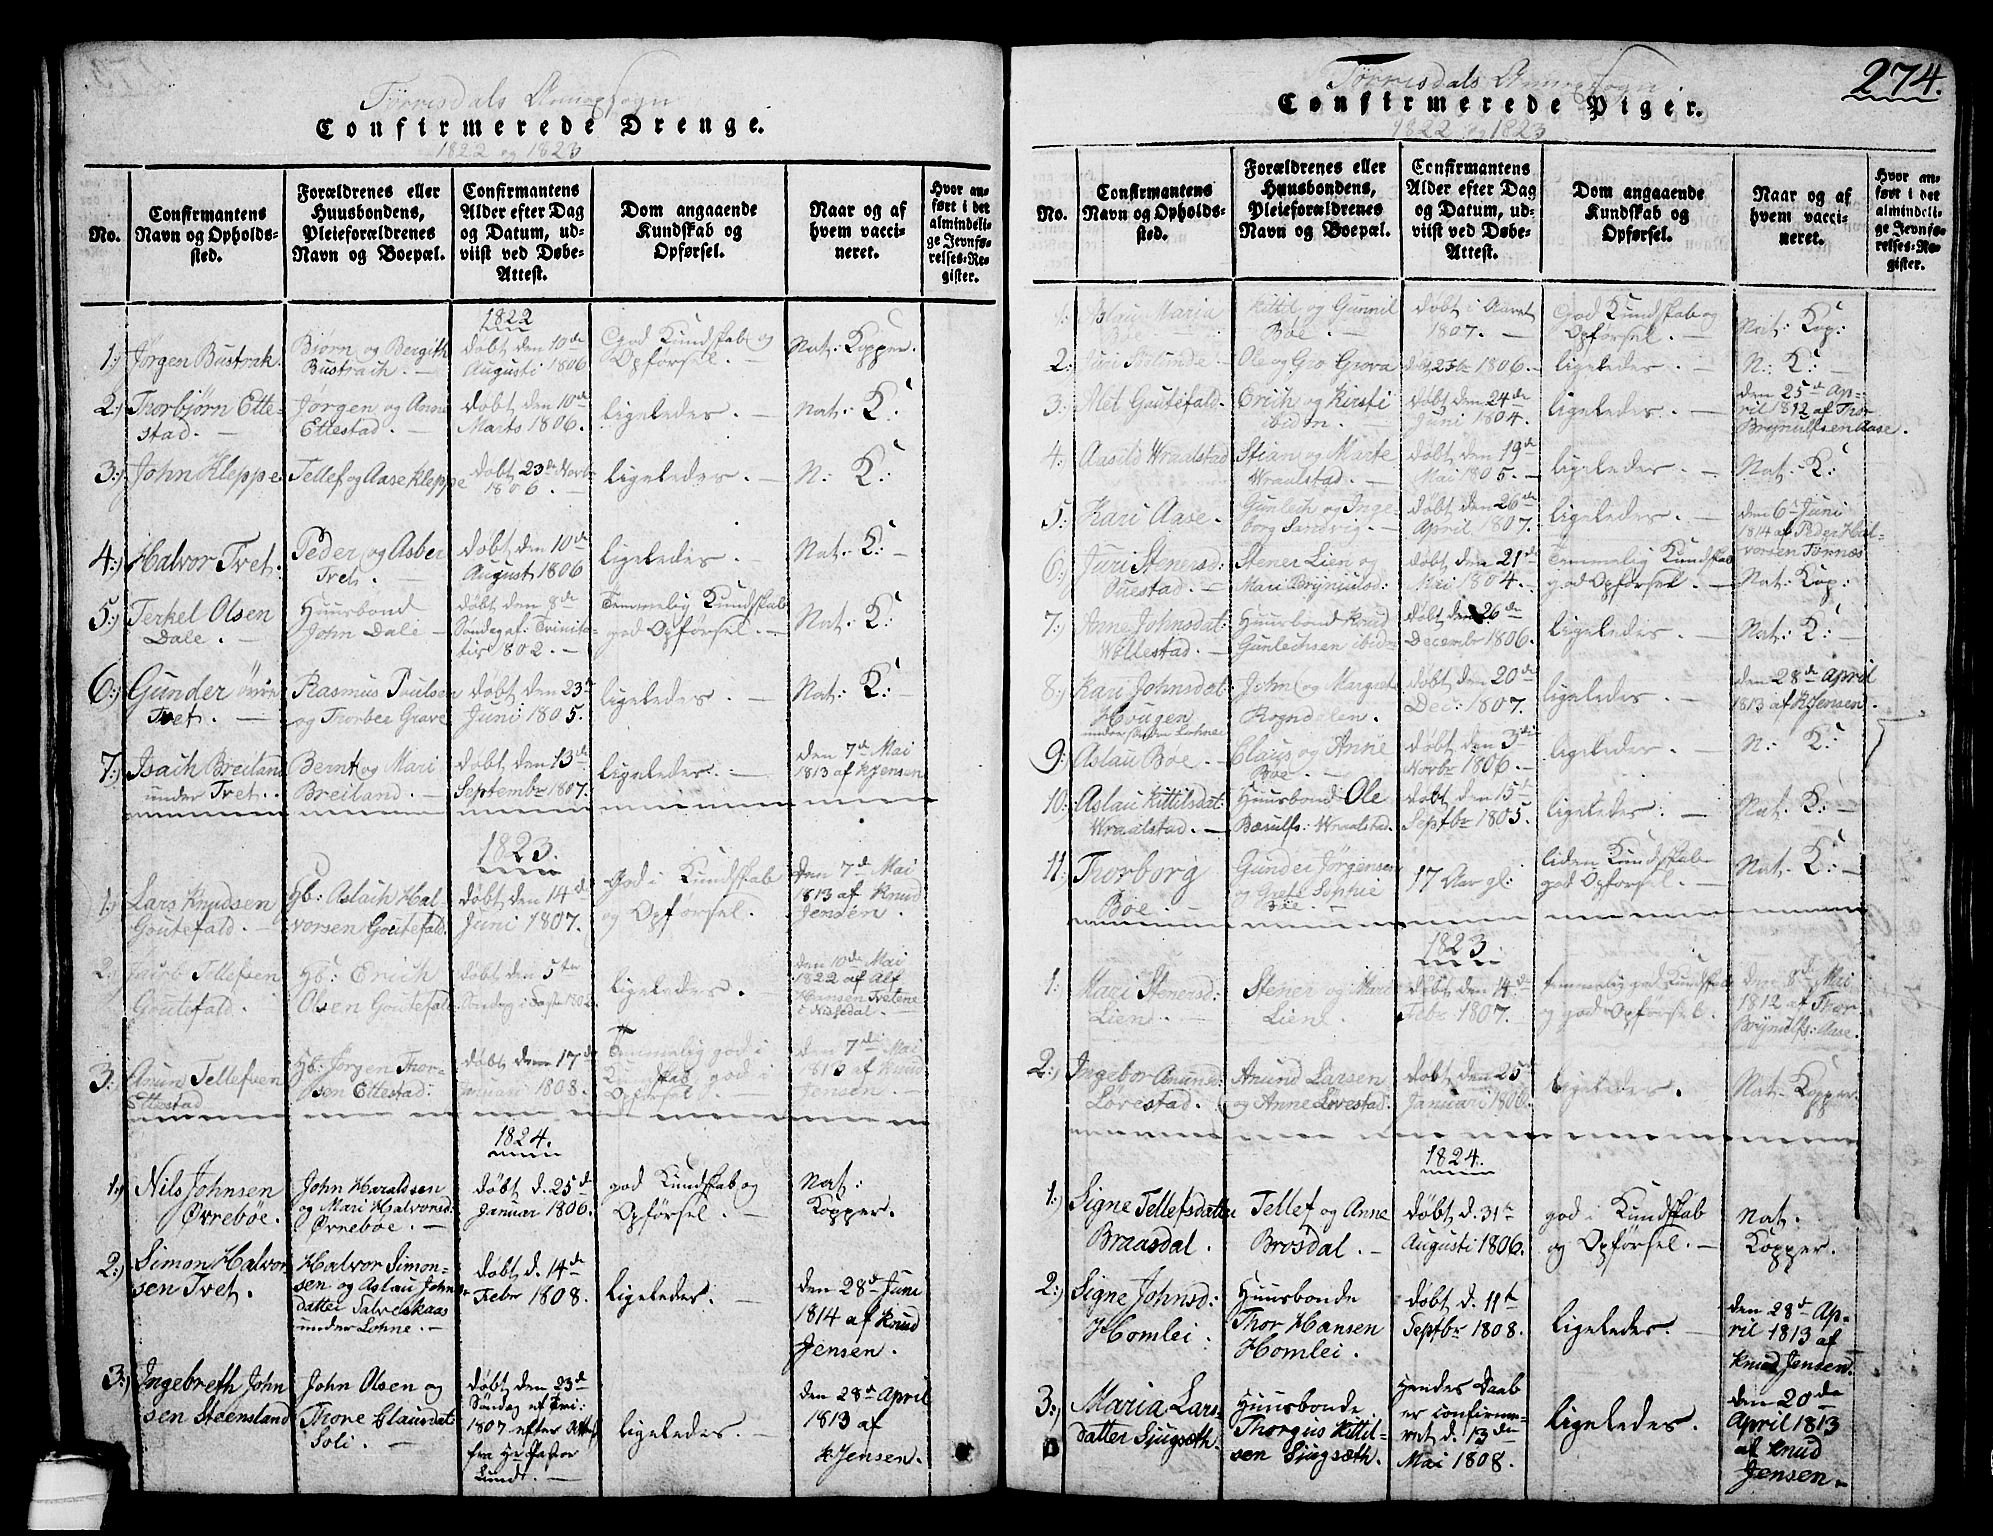 Tørrisdals Annexsogn
Confirmerede Drenge.
1822 og 1823
No.
Confirmantens
Navn og Opholds-
sted.
Forældrenes eller
Huusbondens,
Pleieforældrenes
Navn og Boepæl.
Confirmantens
Alder efter Dag
og Datum, ud-
viist ved Døbe-
Attest.
Dom angaaende
Kundskab og
Opførsel.
Naar og af
hvem vacci-
neret.
Hvor an-
ført i det
almindeli-
ge Jevnfø-
relses-Re-
gister.
1822
1:) Jørgen Bustrak
Biørn og Bergith
Bustrach. —
døbt den 10de
Augusti 1806
God Kundskab og
Opførsel. —
Nat: Kopper.
2:) Thorbjørn Ette-
stad. —
Jørgen og Anne
Ettestad. —
døbt den 10de
Marts 1806. —
ligeledes. —
Nat: K:
3:) John Kleppe
Tellef og Aase Kleppe
døbt 23de Novbr
1806. —
ligeledes. —
N: K:
4:) Halvor Tvet.
Peder og Asber
Tvet. —
døbt den 10de
August 1806
ligeledes. —
Nat: K: —
5:) Terkel Olsen
Dale. —
Huusbond
John Dale —
døbt den 8de
Søndag ef: Trinita-
tis 1802. —
Temmelig Kundskab
god Opførsel. —
Nat: K:
6:) Gunder
Tvet. —
Rasmus Poulsen
og Thorbee Grave
døbt den 23de
Juni 1805.
ligeledes. —
Nat: K: —
7:) Isach Breiland
under Tvet. —
Bernt og Mari
Breiland. —
døbt den 13de
Septembr 1807.
ligeledes. —
den 7de Mai
1813 af K Jensen
1823.
1:) Lars Knudsen
Goutefald. —
Hb: Aslach Hal-
vorsen Goutefald.
døbt den 14de
Juni 1807.
God i Kundskab
og Opførsel.
den 7de Mai
1813 af Knud
Jensen.
2:) Tellefsen
Goutefald.
Hb: Erich
Olsen Goutefald
døbt den 5te
Søndag i Faste 1802.
ligeledes.
den 10de Mai
1822 af Alf
Hansen Tvetene
i Nissedal.
3:) Anun Tellefsen
Ettestad
Hb: Jørgen Thor-
sen Ettestad:
døbt den 17de
Januari 1808.
Temmelig god i
Kundskab god i
Opførsel. —
den 7de Mai
1813 af Knud
Jensen. —
1824.
1:) Nils Johnsen
Øvrebøe.
John Haraldsen
og Mari Halvorsd:
Øvrebøe. —
døbt d. 25de
Januar 1806.
god Kundskab og
Opførsel. —
Nat:
Kopper.
2:) Simon Halvor
sen Tvet.
Halvor Simon-
sen og Aslau Johns-
datter Salveskaas
under Lohne. —
døbt d. 14de
Febr 1808.
ligeledes. —
den 28de Juni
1814 af Knud
Jensen.
3:) Ingebreth John
sen Steensland
John Olsen og
Thore Clausdat
Soli. —
døbt den 23de
Søndag ef Tri:
1807 efter Attest
fra Hr Pastor
Lundt. —
ligeledes. —
den 28de April
1813 af
K: Jensen.
274.
Tørrisdals Annexsogn.
Confirmerede Piger.
1822 og 1823
No.
Confirmantens
Navn og Opholds-
sted.
Forældrenes eller
Huusbondens,
Pleieforældrenes
Navn og Boepæl.
Confirmantens
Alder efter Dag
og Datum, ud-
viist ved Døbe-
Attest.
Dom angaaende
Kundskab og
Opførsel.
Naar og af
hvem vacci-
neret.
Hvor an-
ført i det
almindeli-
ge Jevnfø-
relses-Re-
gister.
1: Aslau Maria
Bøe
Kittil og Gunnil
Bøe. —
døbt i Aaret
1807. —
God Kundskab og
Opførsel. —
Nat: Kop:
2: Juri
Ole og Gro Grova
1806. —
ligeledes. —
N: K: —
3: Alet Goutefald.
Erich og Kirsti
ibidm. —
døbt den 24de
Juni 1804.
ligeledes. —
den 25de Ap-
ril 1812 af Thor
Brynulfsen Aase.
4: Aasild Wraalstad
Stian og Marte
Wraalstad. —
døbt den 19de
Mai 1805. —
ligeledes. —
Nat: K:
5:) Kari Aase. —
Gunlech og Inge-
borg Sandvig. —
døbt den 26de
April 1807.
ligeledes. —
den 6te Juni
1814 af Peder Hal-
vorsen Tørnæs
6:) Juri Stenersd:
Ouestad. —
Stener Lien og
Mari Brynjulsd:
døbt den 21de
Mai 1804. —
Temmelig Kundskab
god Opførsel. —
Nat: Kop:
7:) Anne Johnsdat:
Wællestad. —
Huusbond Knud
Gunlechsen ibid.
døbt den 26de
Decembr 1806.
ligeledes. —
Nat: K: —
8:) Kari Johnsdat:
Hougen
under Lohne
John og Margret
Rogndalen.
døbt den 20de
Dec: 1807.
ligeledes —
den 28de April
1813 af K Jensen.
9:) Aslau Bøe. —
Claus og Anne
Bøe. —
døbt den 3de
Novbr 1806. —
ligeledes. —
N: K:
10: Aslau Kittilsdat:
Wraalstad. —
Huusbond Ole
Bæsulfs: Wraalstad.
døbt den 15te
Septbr 1805.
ligeledes: —
Nat: K: —
11: Thorborg
Bøe. —
Gunder Jørgensen
og Grete Sophie
Bøe. —
17 Aar gl:
liden Kundskab
god Opførsel. —
Nat: K: —
1823.
1: Mari Stenersd:
Lien. —
Stener og Mari
Lien.
døbt den 14de
Febr 1807.
temmelig god Kundskab
og god Opførsel. —
den 8de Mai
1812 af Thor
Brynulfs: Aase.
2:) Ingebor Anunds:
Lovestad.
Anund Larsen
og Anne Lovestad.
døbt den 25de
Januari 1806.
ligeledes.
Nat: Kopper.
1824.
1:) Signe Tellefsdatter
Braasdal.
Tellef og Anne
Brosdal. —
døbt d. 31te
Augusti 1806.
god i Kundskab
og Opførsel. —
Nat.
Kopper.
2:) Signe Johnsd:
Homlei.
Huusbonde
Thor Hansen
Homlei.
døbt d. 11te
Septbr 1808.
ligeledes. —
den 28de Ap-
ril 1813 af
Knud Jensen.
3:) Maria Lars-
datter Sjugsæth.
Huusbonde
Thorgus Kittil-
sen Sjugsæth.
Hendes Daab
er confirme-
ret d. 13de
Mai 1808.
ligeledes.
den 20de
April 1813
af Knud
Jensen. —